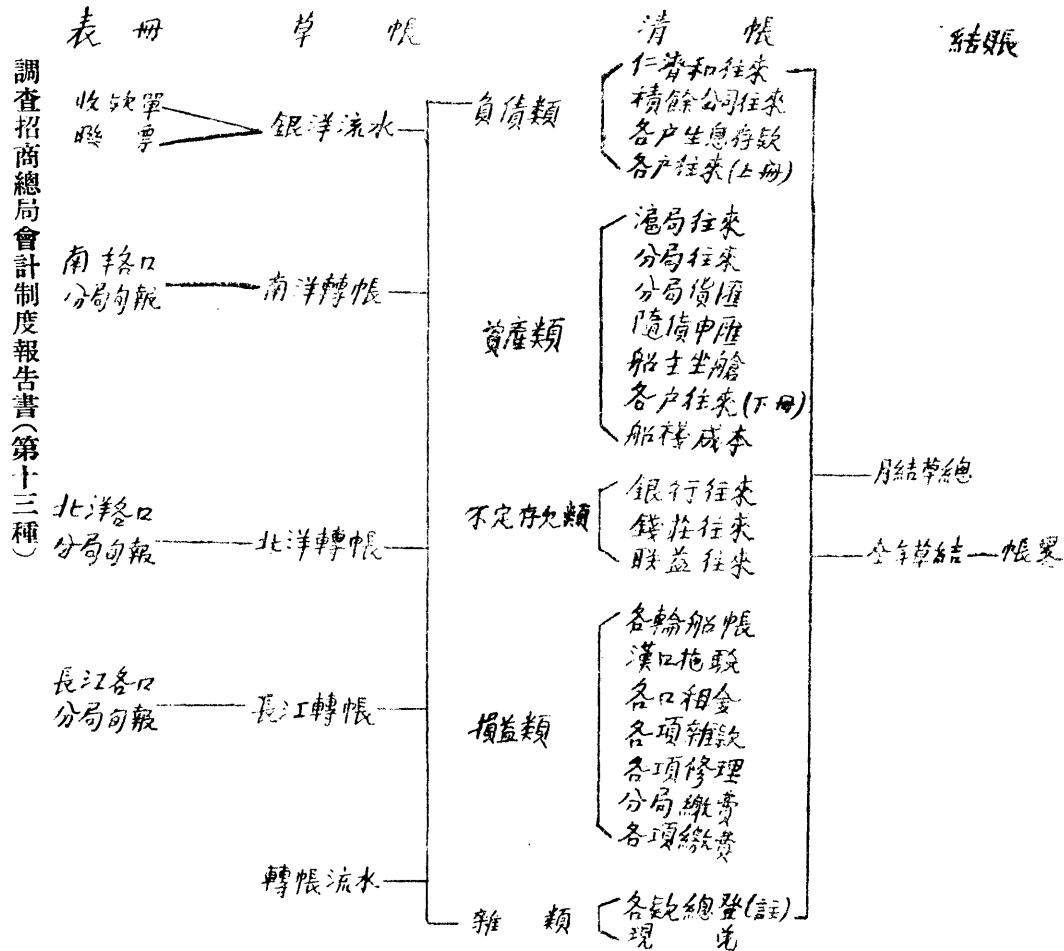 調查招商總局會計制度報告書(第十三種)
表冊
草帳
清帳
結賬
收款單
聯票
銀洋流水
南洋各口
分局旬報
南洋轉帳
北洋各口
分局旬報
北洋轉帳
長江各口
分局旬報
長江轉帳
轉帳流水
負債類
仁濟和往來
積餘公司往來
各户生息存款
各户往來(上冊)
資產類
滬局往來
分局往來
分局貨匯
隨貨申匯
船主坐艙
各户往來(下冊)
船棧成本
不定存欠類
銀行往來
錢莊往來
聯益往來
損益類
各輪船帳
漢口拖駁
各口租金
各項雜款
各項修理
分局繳費
各項繳費
雜類
各款總登(註)
現
月結草總
全年草結
帳畧